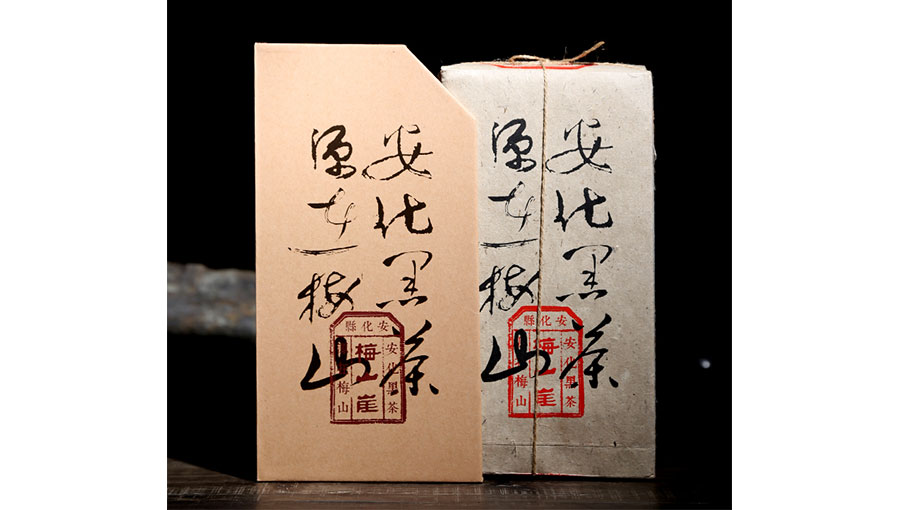 安化黑茶
源在梅山
安化縣
安化黑茶
梅山崖
梅山
安化黑茶
源在梅山
安化縣
安化黑茶
梅山崖
梅山